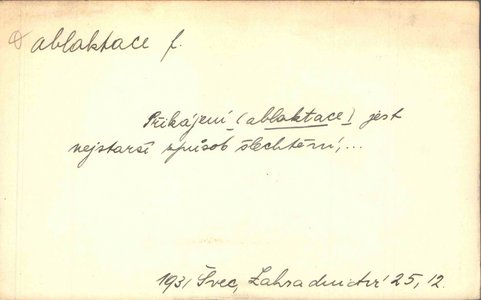 ablaktace f.
Přikájení (ablaktace) jest
nejstarší způsob šlechtění,...
1931 Švec, Zahradnictví 25, 12.